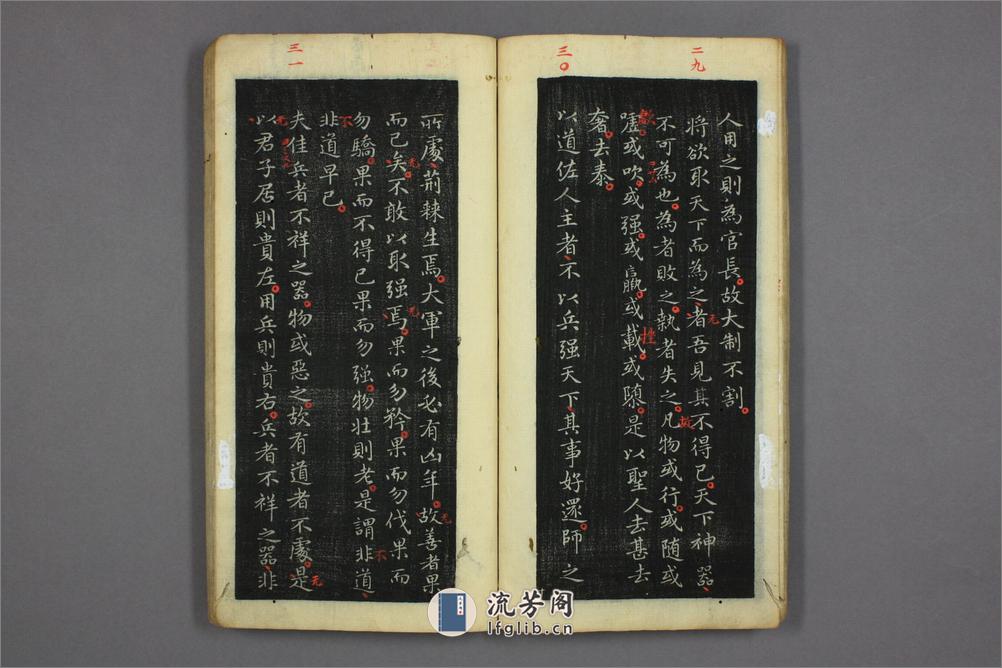 二九
人用之則為官長故大制不割
將欲取天下而為之者吾見其不得已天下神器
不可為也為者敗之執者失之凡物或行或隨或
噓或吹或强或羸或載或隳是以聖人去甚去
奢去泰
三〇
以道佐人主者不以兵强天下其事好還師之
所處荊棘生焉大軍之後必有凶年故善者果
而已矣不敢以取强焉果而勿矜果而勿伐果而
勿驕果而不得已果而勿强物壯則老是謂非道
非道早已
三一
夫佳兵者不祥之器物或惡之故有道者不處是
以君子居則貴左用兵則貴右兵者不祥之器非
无
故
歔
挫
无
无
无
不
不
无
无
流芳阁
lfglib.cn